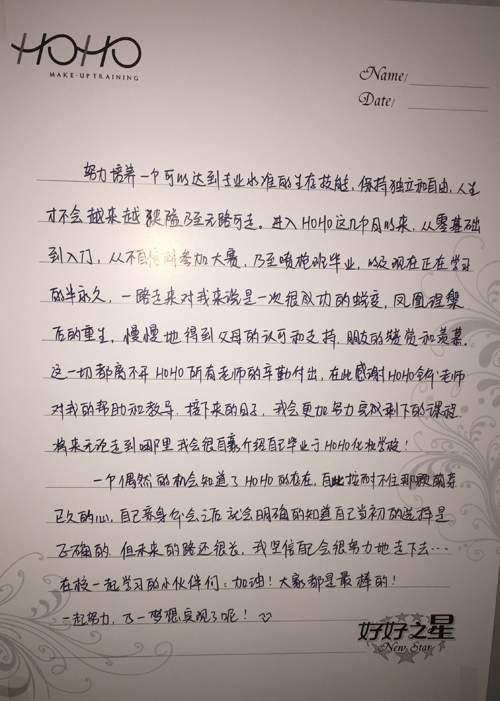 HOHO
MAKE-UP TRAINING
Name/
Date/
努力培养一个可以达到专业水准的生存技能,保持独立和自由,人生
才不会越来越狭隘乃至无路可走。进入HOHO这几个月以来,从零基础
到入门,从不自信到参加大赛,乃至喷枪班毕业,以及现在正在学习
的半永久,一路走来对我来说是一次很成功的蜕变,凤凰涅槃
后的重生,慢慢地得到父母的认可和支持,朋友的赞赏和羡慕。
这一切都离不开HOHO所有老师的辛勤付出,在此感谢HOHO全体老师
对我的帮助和教导,接下来的日子,我会更加努力完成剩下的课程
将来无论走到哪里我会很自豪介绍自己毕业于HOHO化妆学校!
一个偶然的机会知道了HOHO的存在,自此拉耐不住那颗萌存
已久的心,自己亲身体会之后就会明确的知道自己当初的选择是
正确的,但未来的路还很长,我坚信自己会很努力地走下去…
在校一起学习的小伙伴们:加油!大家都是最棒的!
一起努力,万一梦想实现了呢!
好好之星
New Star